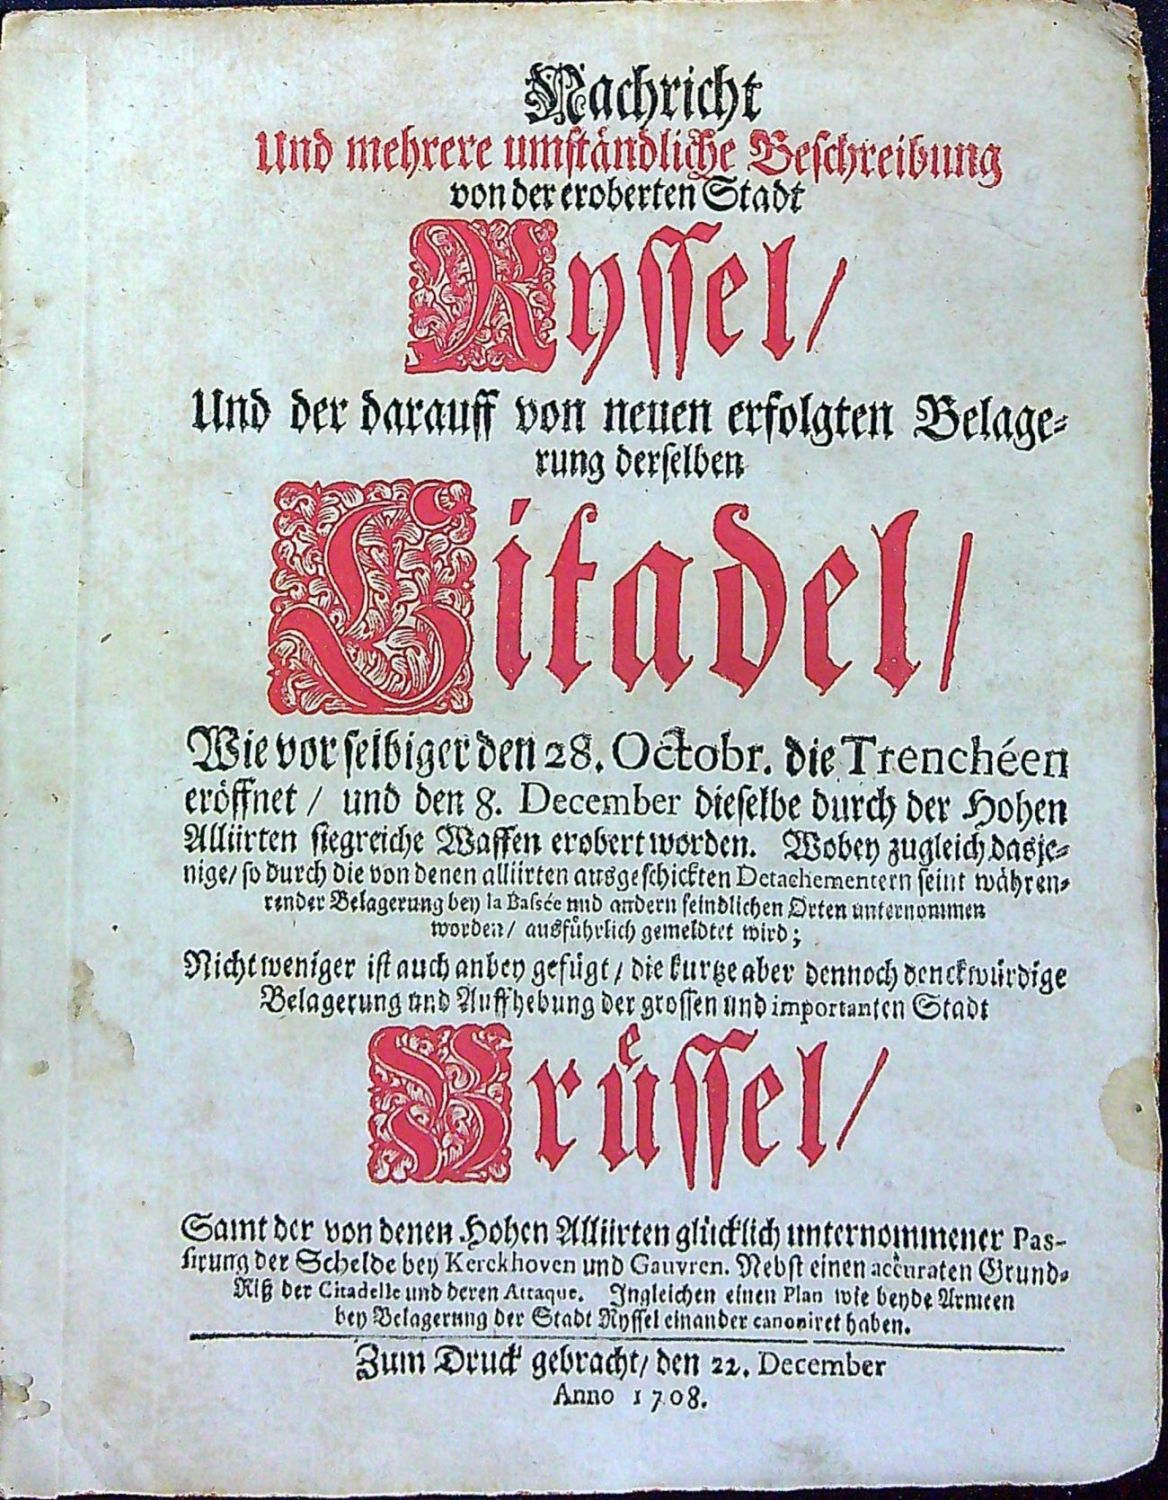 Nachricht
Und mehrere umständliche Beschreibung
von der eroberten Stadt
Ryssel/
Und der darauff von neuen erfolgten Belage-
rung derselben
Citadel/
Wie vor selbiger den 28. Octobr. die Trenchéen
eröffnet / und den 8. December dieselbe durch der Hohen
Alliirten siegreiche Waffen erobert worden. Wobey zugleich dasje-
nige/ so durch die von denen alliirten ausgeschickten Detachementern seint währen-
render Belagerung bey la Bassée und andern feindlichen Orten unternommen
worden/ ausführlich gemeldtet wird;
Nicht weniger ist auch anbey gefügt / die kurtze aber dennoch denckwürdige
Belagerung und Auffhebung der grossen und importanten Stadt
Brüssel/
Samt der von denen Hohen Alliirten glücklich unternommener Pas-
sirung der Schelde bey Kerckhoven und Gauvren. Nebst einen accuraten Grund-
Riß der Citadelle und deren Attaque. Ingleichen einen Plan wie beyde Armeen
bey Belagerung der Stadt Ryssel einander canoniret haben.
Zum Druck gebracht/ den 22. December
Anno 1708.